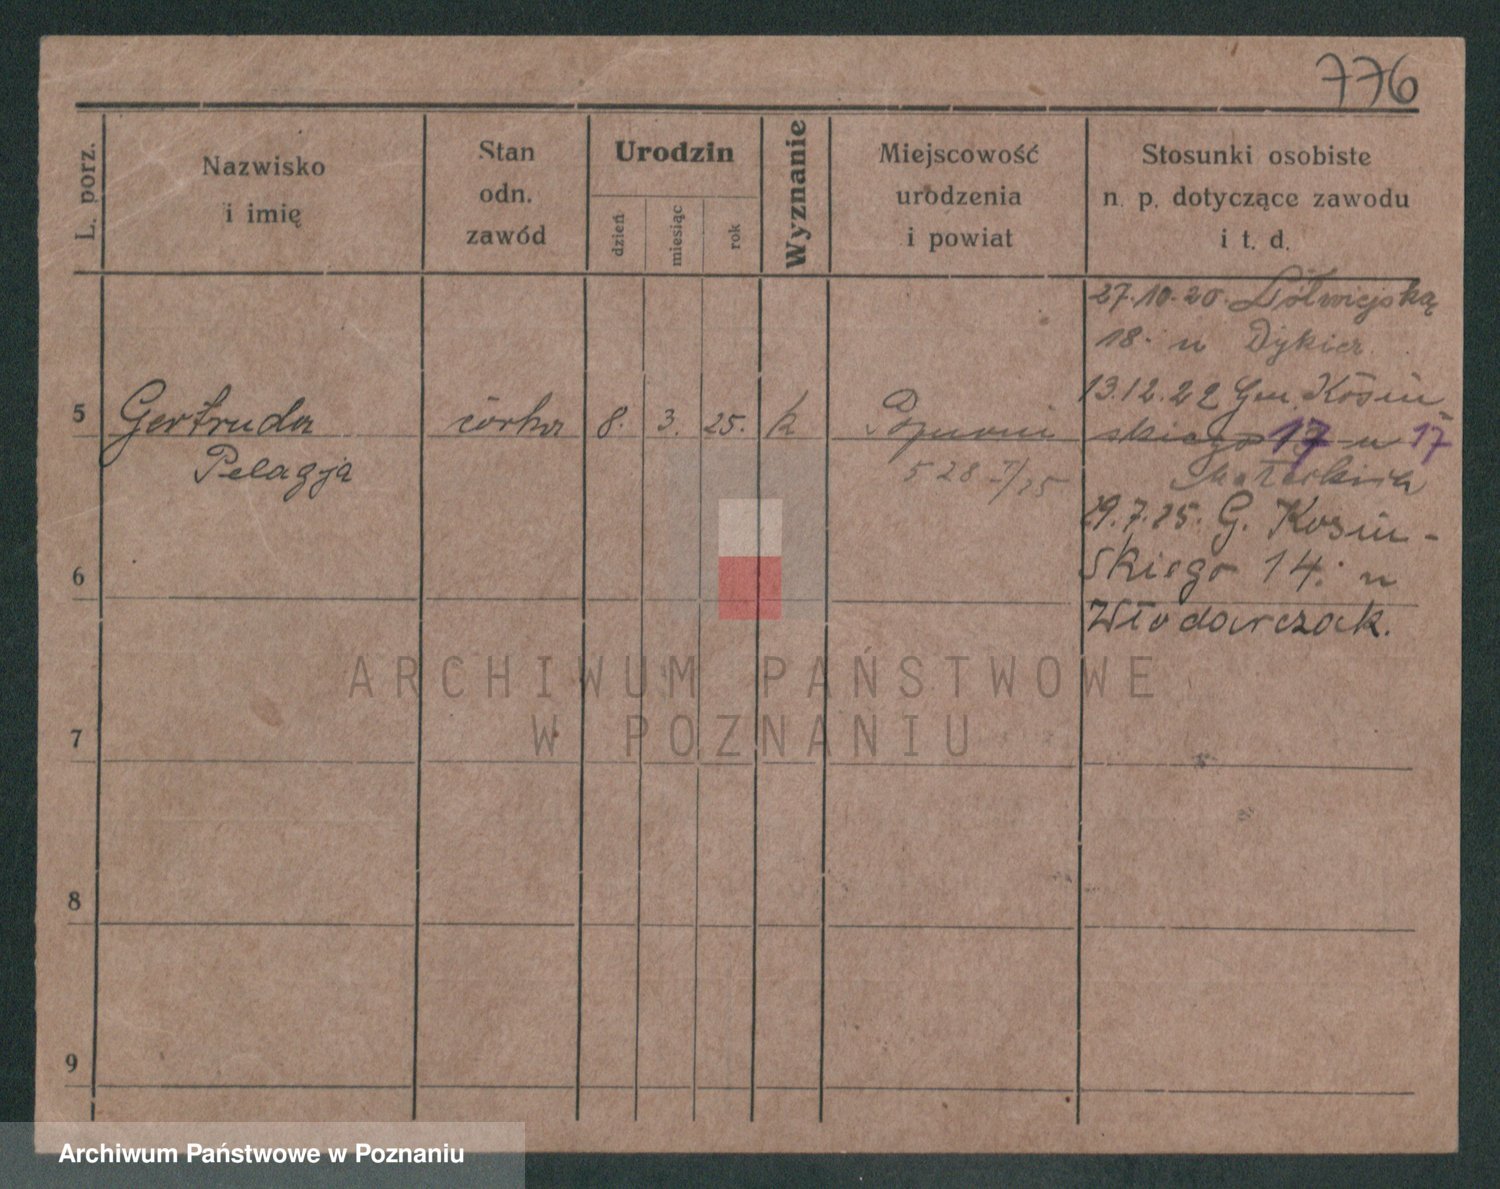 776
L. porz.
Nazwisko
i imię
Stan
odn.
zawód
Urodzin
dzień
miesiąc
rok
Wyznanie
Miejscowość
urodzenia
i powiat
Stosunki osobiste
n. p. dotyczące zawodu
i t. d.
27.10.20. Półwiejską
18. u Dykier
13.12.22 Gen. Kosiń
5 Gertruda córka 8. 3. 25. k
skiego 17 u 17
Pelagja
29.7.25. G. Kosiń-
6
skiego 14. u
Włodarczak.
ARCHIWUM PAŃSTWOWE
W POZNANIU
7
8
9
Archiwum Państwowe w Poznaniu